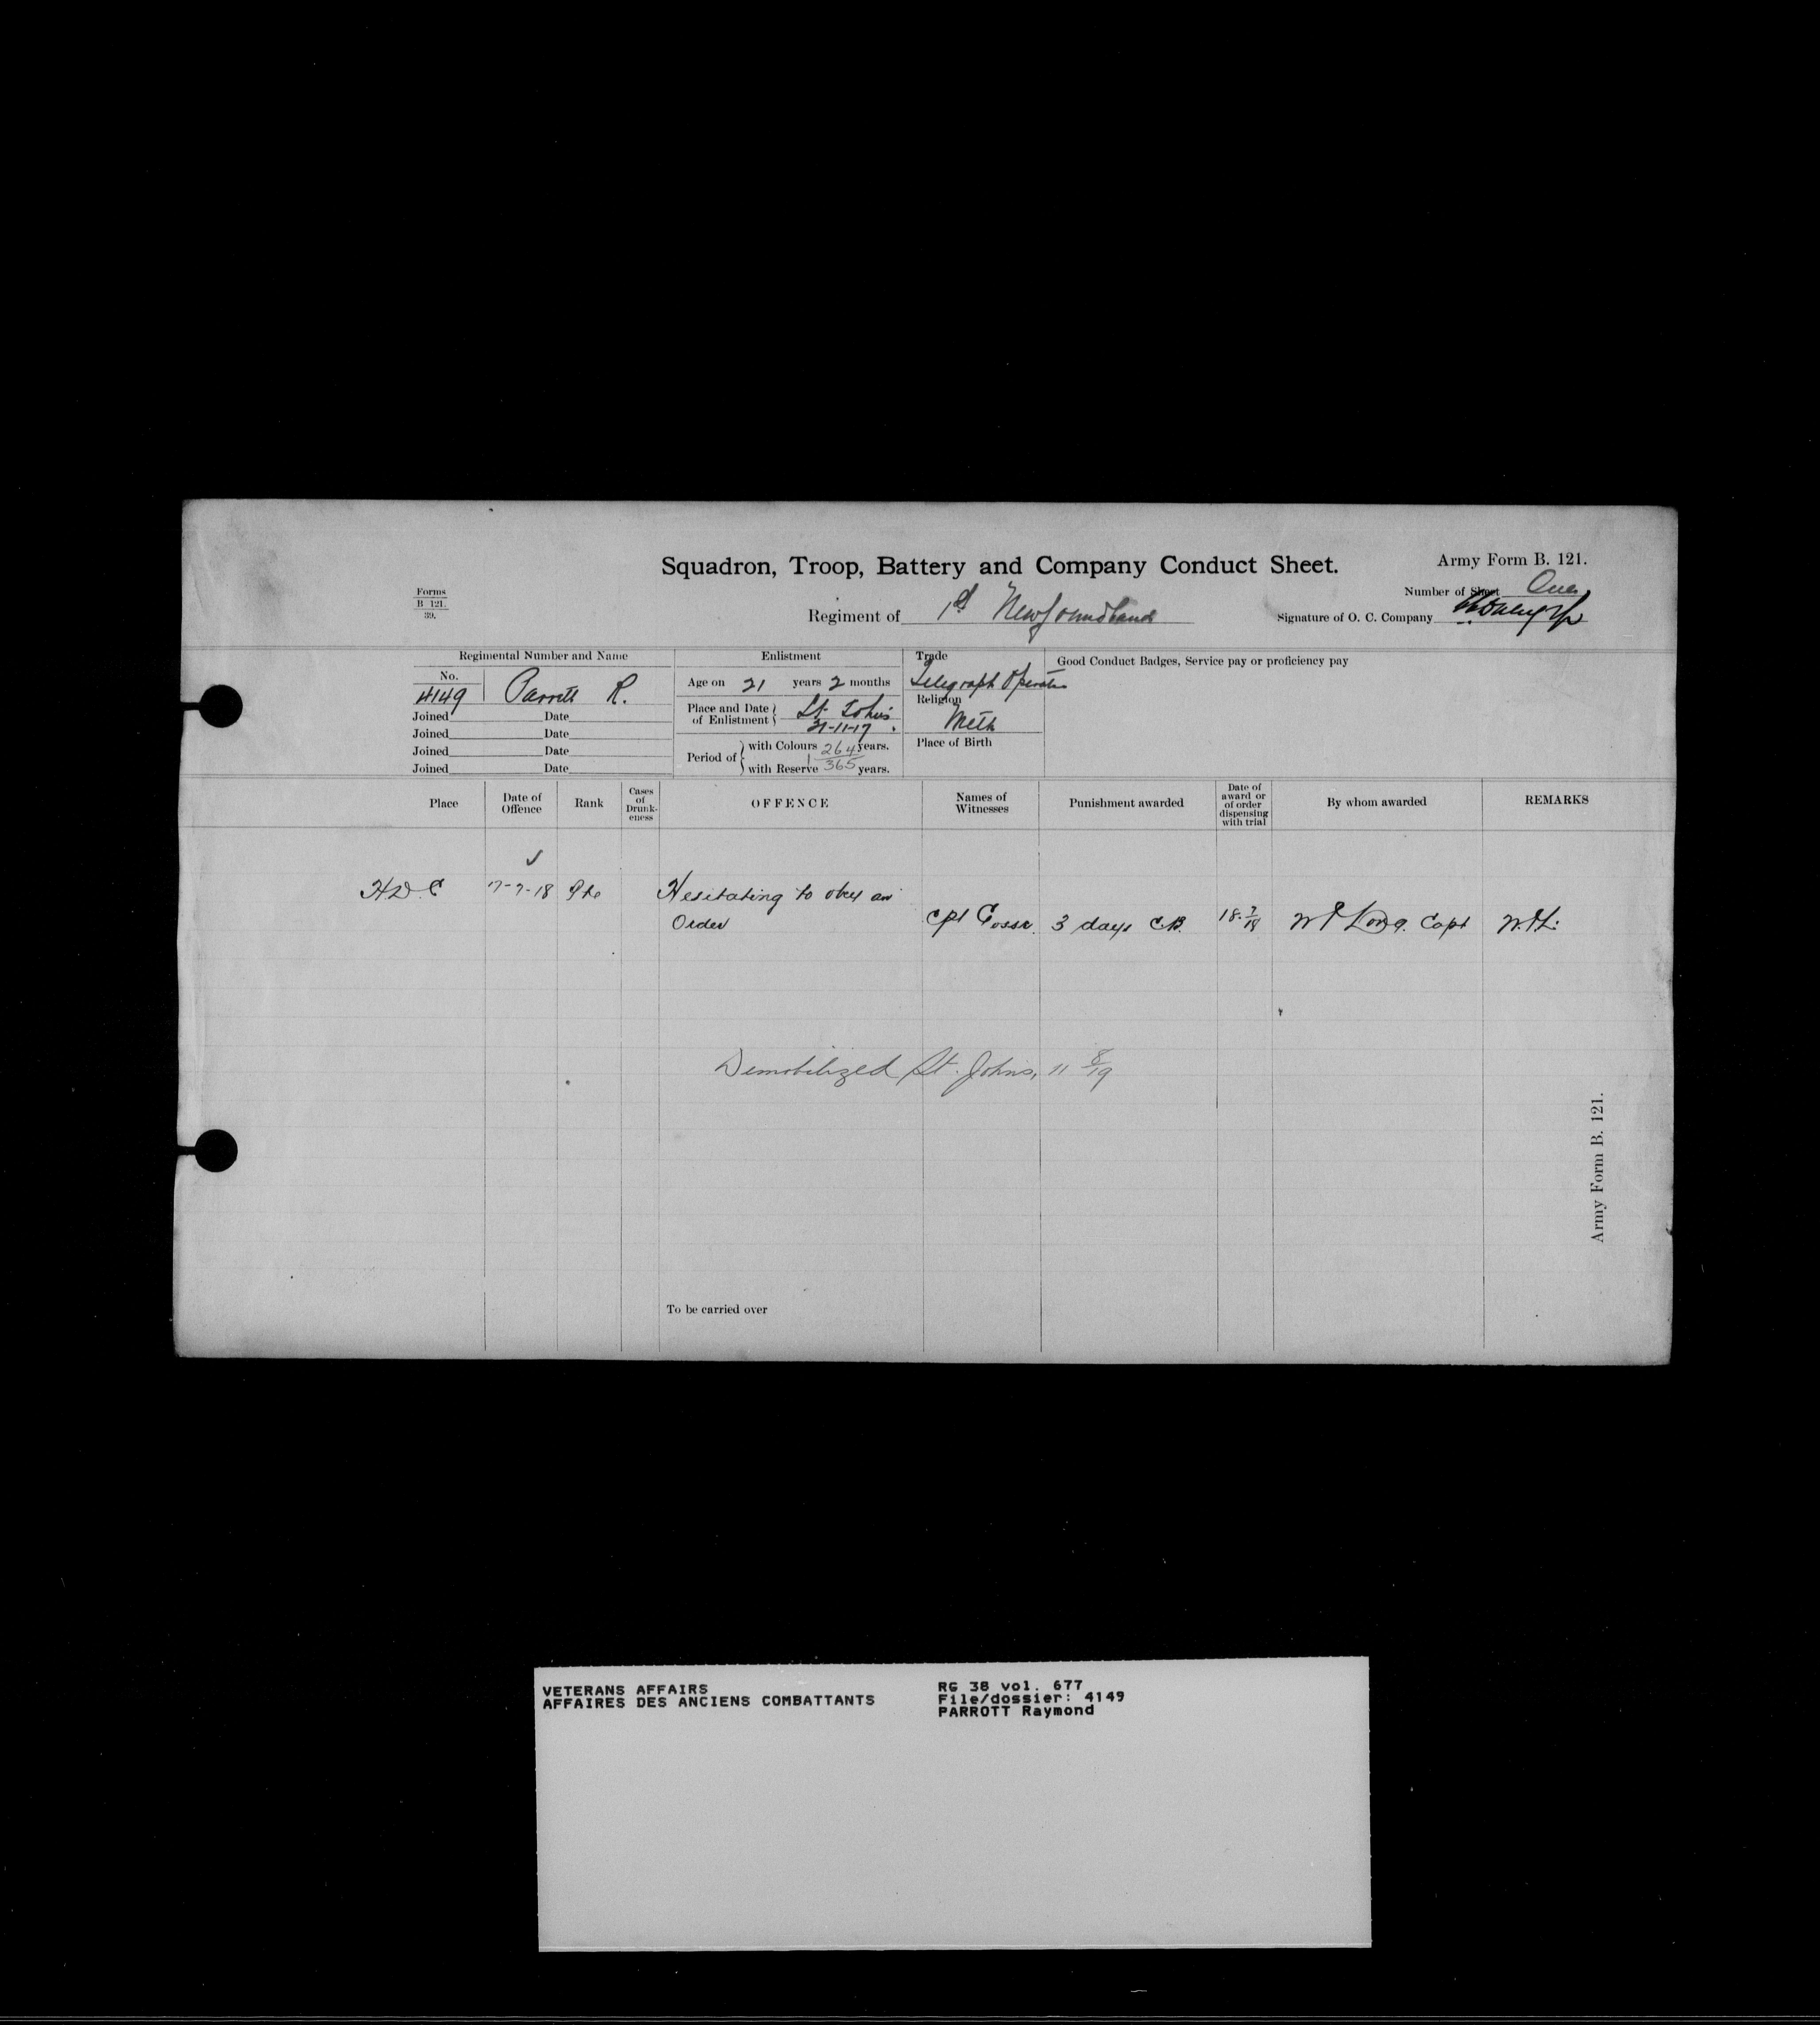 Squadron, Troop, Battery and Company Conduct Sheet.
Army Form B. 121.
Forms
B 121.
39.
Number of Sheet One
Regiment of 1st Newfoundland
Signature of O. C. Company
Regimental Number and Name
Enlistment
Trade
Good Conduct Badges, Service pay or proficiency pay
No.
4149 Parrott R.
Age on 21 years 2 months
Telegraph Operator
Religion
Meth
Place and Date of Enlistment St. John's
21-11-17.
Joined Date
Joined Date
Joined Date
Joined Date
Period of with Colours 1 264 years.
with Reserve 365 years.
Place of Birth
Place
Date of Offence
Rank
Cases of Drunk-eness
OFFENCE
Names of Witnesses
Punishment awarded
Date of award or of order dispensing with trial
By whom awarded
REMARKS
H.D.C 17-7-18 Pte Hesitating to obey an
Order Cpl Gosse. 3 days C.B. 18.7/18 Capt
Demobilized St. Johns, 11 8/19
To be carried over
Army Form B. 121.
VETERANS AFFAIRS
AFFAIRES DES ANCIENS COMBATTANTS
RG 38 vol. 677
File/dossier: 4149
PARROTT Raymond